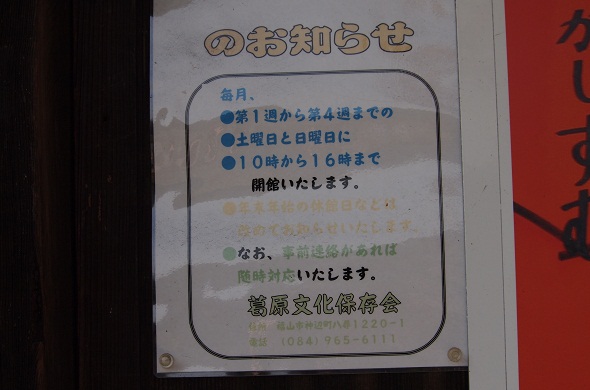 のお知らせ
毎月、
●第1週から第4週までの
●土曜日と日曜日に
●10時から16時まで
開館いたします。
●年末年始の休館日などは
改めてお知らせいたします
●なお、事前連絡があれば
随時対応いたします。
葛原文化保存会
福山市神辺町八尋1220-1
電話 (084)965-6111
かします